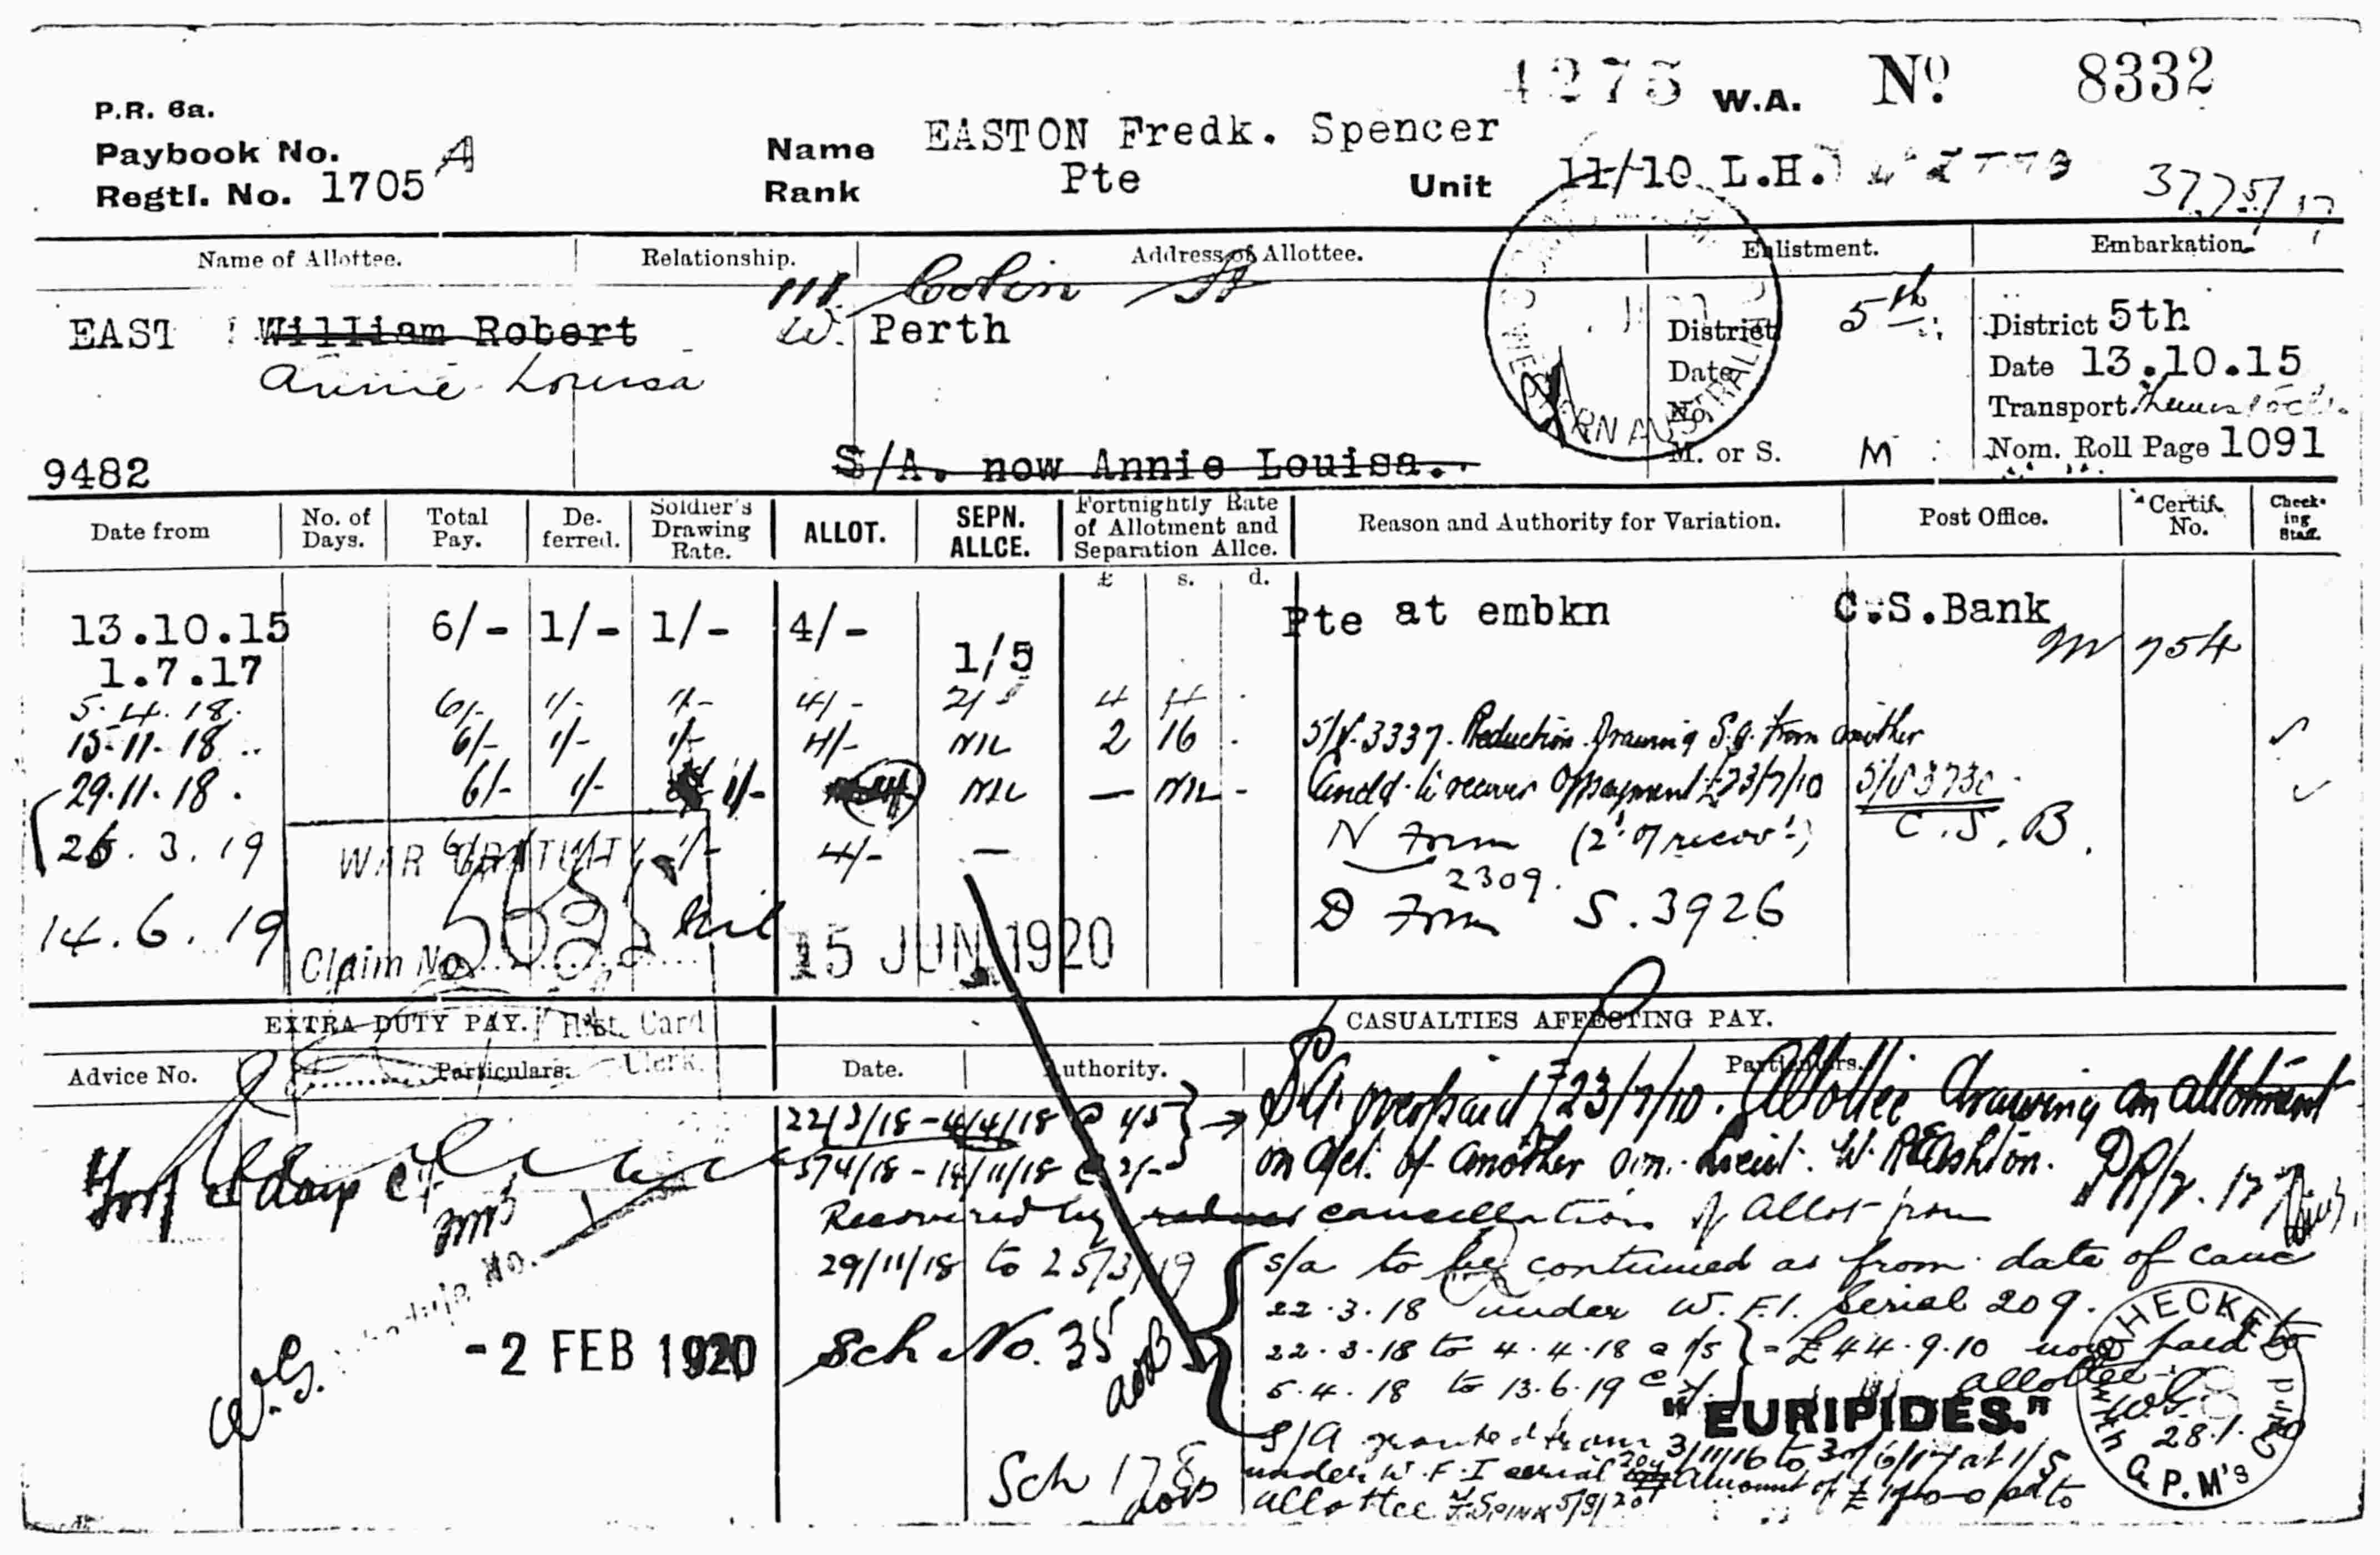 4275 W.A. No 8332
P.R. 6a.
Paybook No.
Regtl. No. 1705 A
Name EASTON Fredk. Spencer
Rank Pte Unit 11/10 L.H.
Name of Allottee. Relationship. Address of Allottee. Enlistment. Embarkation.
111 Colin St
EAST William Robert W. Perth
Annie Louisa
District 5th
Date
No.
M. or S. M
District 5th
Date 13.10.15
Transport
Nom. Roll Page 1091
9482 S/A. now Annie Louisa.
Date from No. of Days. Total Pay. De-ferred. Soldier's Drawing Rate. ALLOT. SEPN. ALLCE. Fortnightly Rate of Allotment and Separation Allce. Reason and Authority for Variation. Post Office. Certif. No. Check-ing Staff.
£ s. d.
13.10.15 6/- 1/- 1/- 4/- Pte at embkn C.S.Bank
1.7.17 1/5 754
5.4.18. 6/- 1/- 1/- 4/- 2/- 4 4 -
15.11.18 6/- 1/- 1/- 4/- NIL 2 16 - 5/S.3337. Reduction Drawing S.A. from another
29.11.18. 6/- 1/- 1/- NIL — NIL - Cancld. to recover O/payment £23/7/10 5/S 3730
26.3.19 1/- 4/- — N Form (2nd of recov) C.S.B.
2309.
14.6.19 Nil D Form S.3926
WAR GRATUITY
Claim No.
15 JUN 1920
EXTRA DUTY PAY. CASUALTIES AFFECTING PAY.
Hist. Card
Clerk.
Advice No. Particulars. Date. Authority. Particulars.
22/3/18 - 4/4/18 @ 1/5 S.A. overpaid £23/7/10. Allottee drawing an allotment
5/4/18 - 14/11/18 @ 2/- on a/ct. of another
Recovered by cancellation of Allot from
29/11/18 to 25/3/19
s/a to be continued as from date of canc
22.3.18 under W.F.I. Serial 209.
22.3.18 to 4.4.18 @ 1/5 = £44.9.10 now paid to
5.4.18 to 13.6.19 allottee
- 2 FEB 1920
Sch No. 35
W.G.
"EURIPIDES."
S/A granted from 3/11/16 to 30/6/17 at 1/5
under W.F.I serial Amount of pd to
allottee
Sch 178
CHECKED with A.P.M's Card
28.1.20